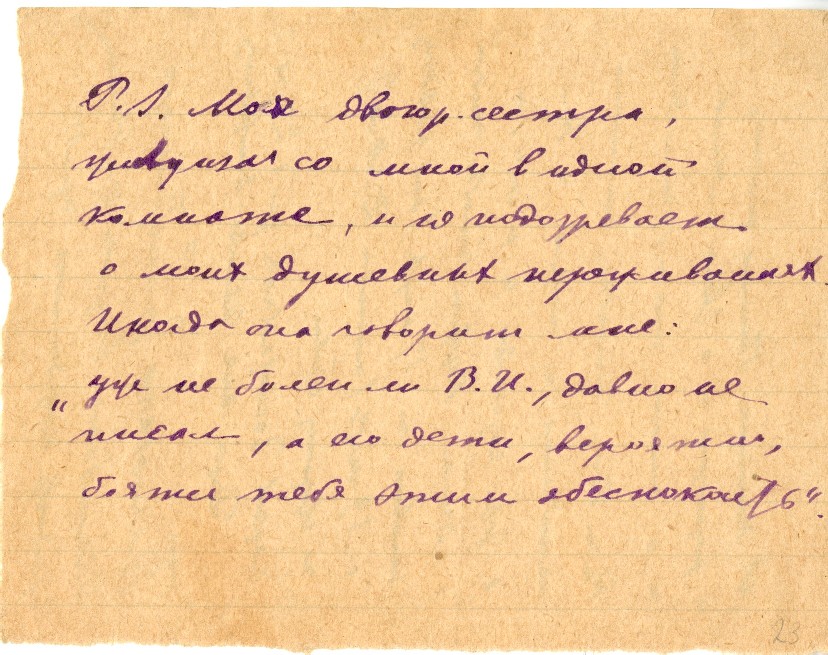 P.S. Моя двоюр. сестра,
живущая со мной в одной
комнате, и не подозревает
о моих душевных переживаниях.
Иногда она говорит мне:
„уж не болен ли В.И., давно не
писал, а его дети, вероятно,
боятся тебя этим обеспокоить".
23